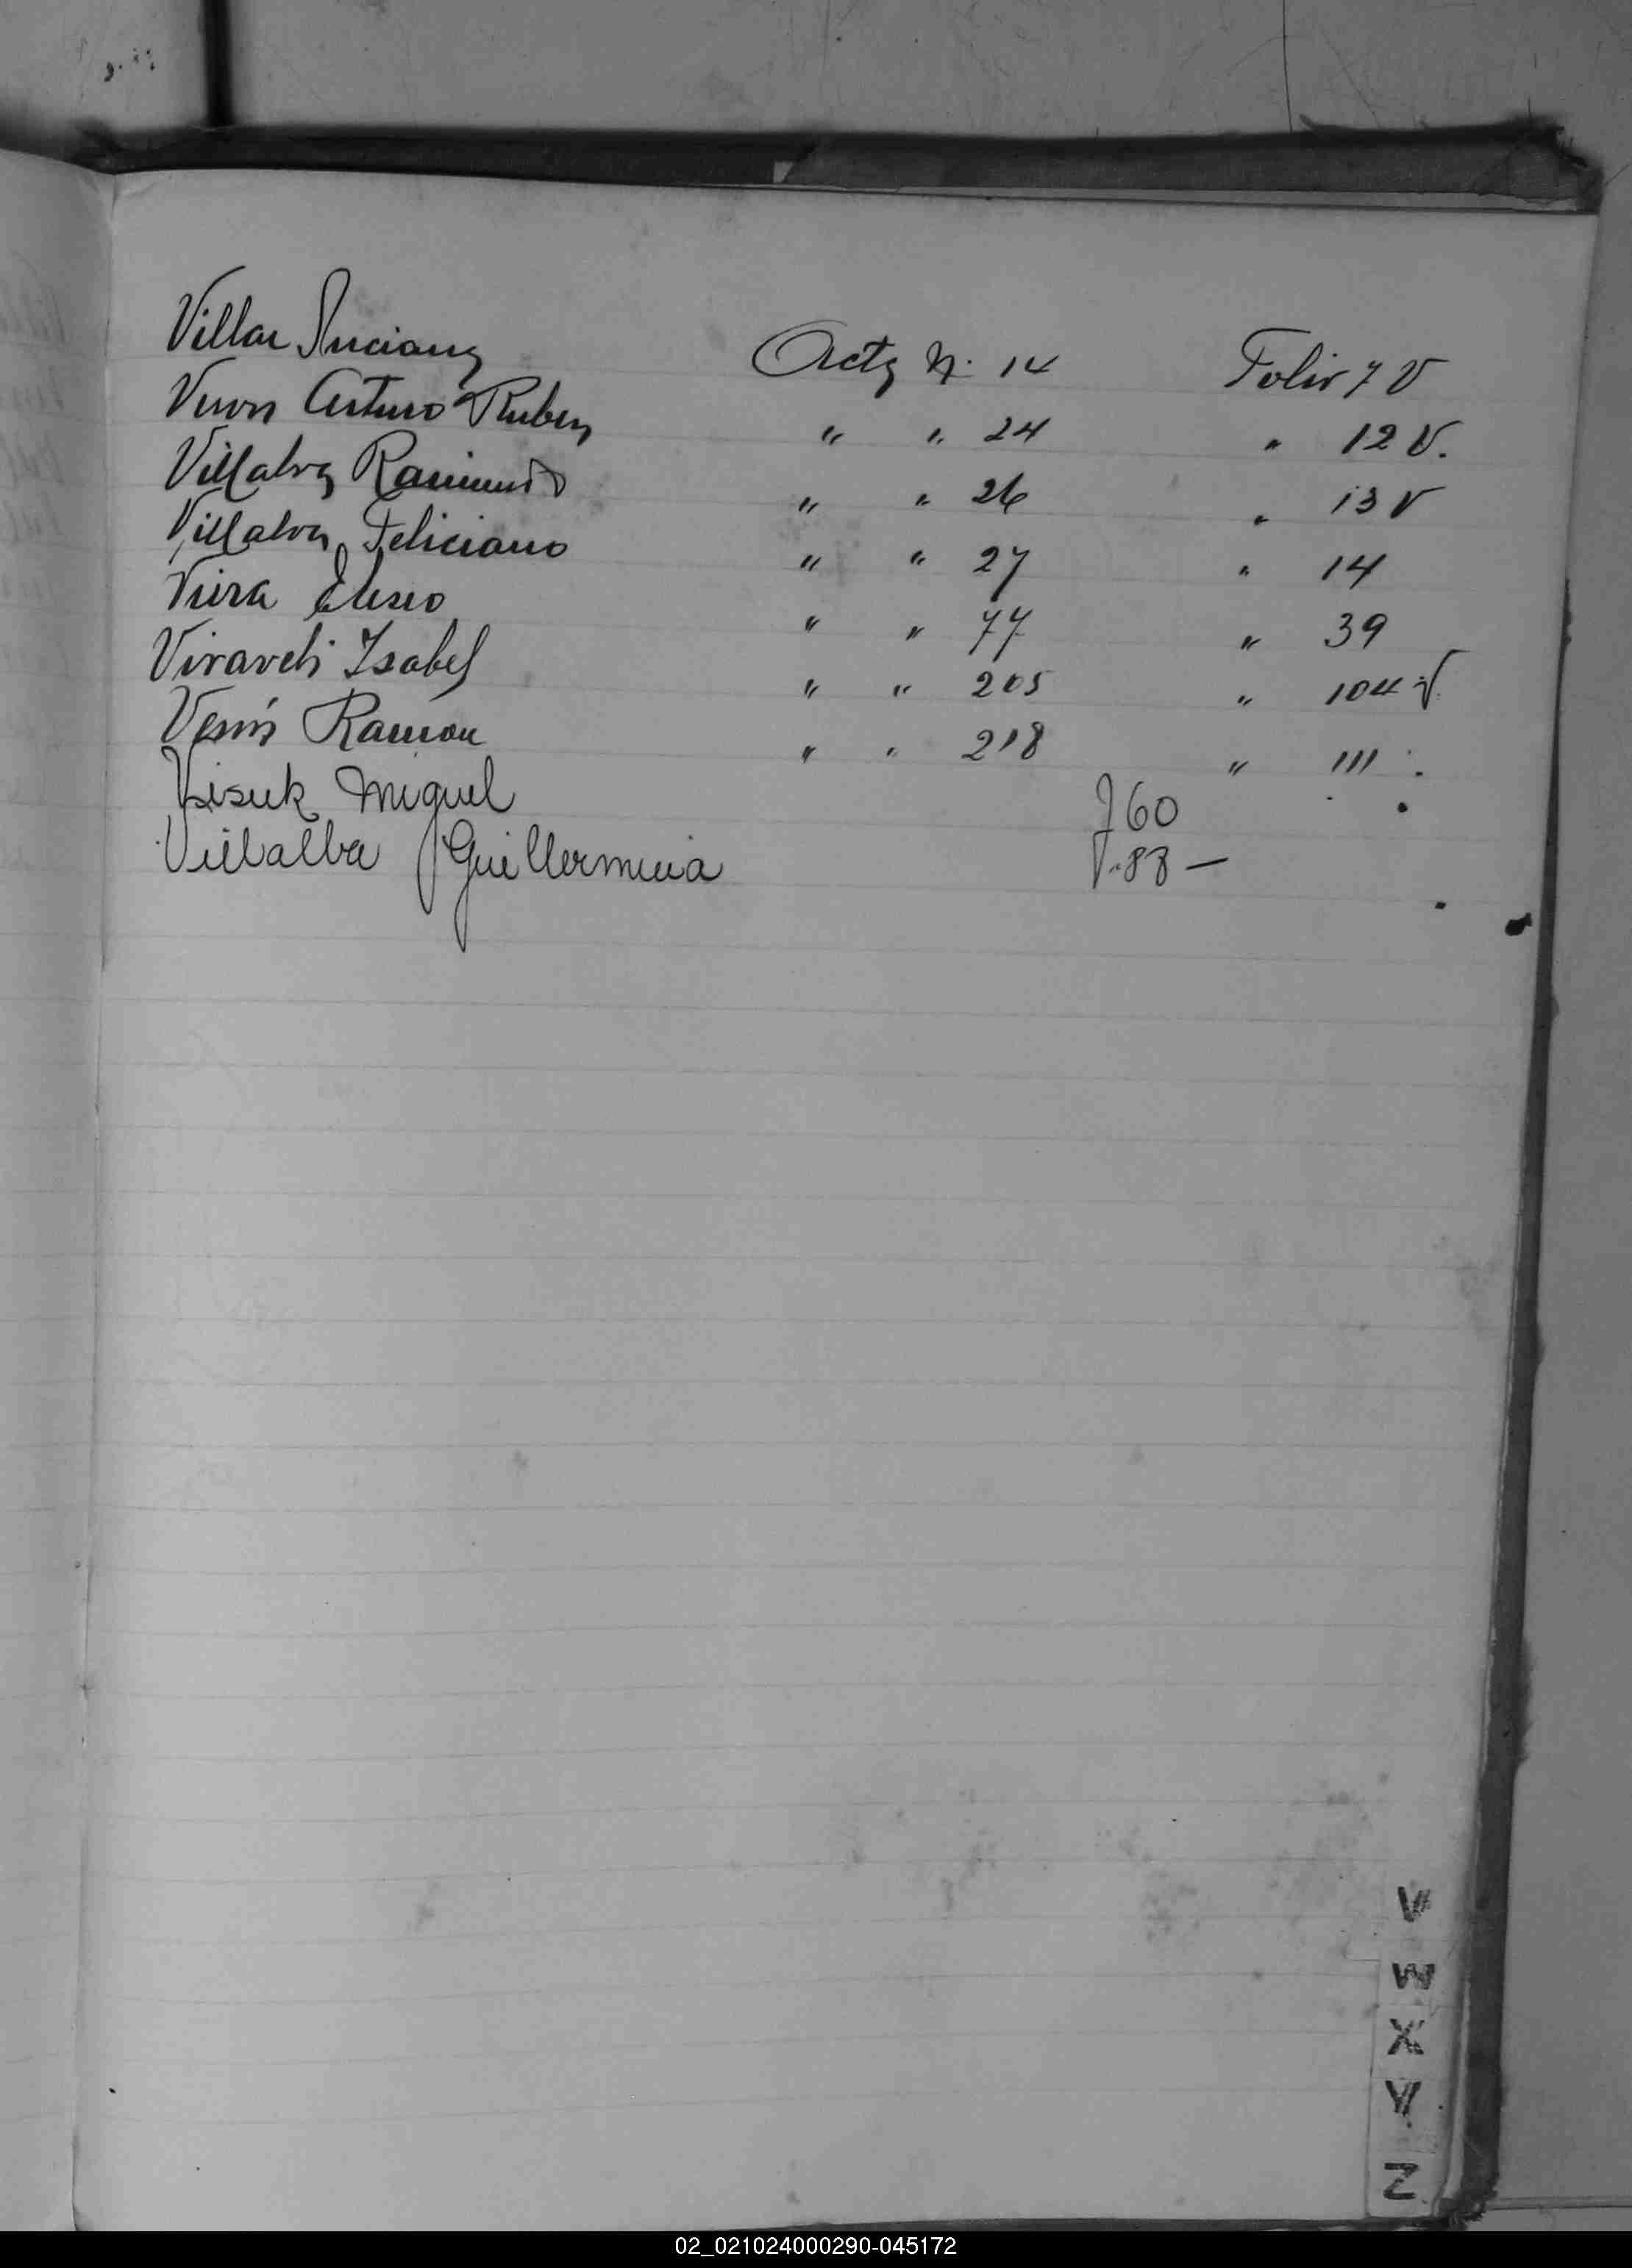 Villar Luciana Acta N. 14 Folio 7 V
Veron Arturo Ruben " " 24 " 12 V.
Villalva Raimundo " " 26 " 13 V
Villalva Feliciano " " 27 " 14
Viera Eliseo " " 77 " 39
Viraveli Isabel " " 205 " 104 V
Ramon " " 218 " 111
Miguel 760
Villalba Guillermina V. 88 —
V
W
X
Y
Z
02_021024000290-045172